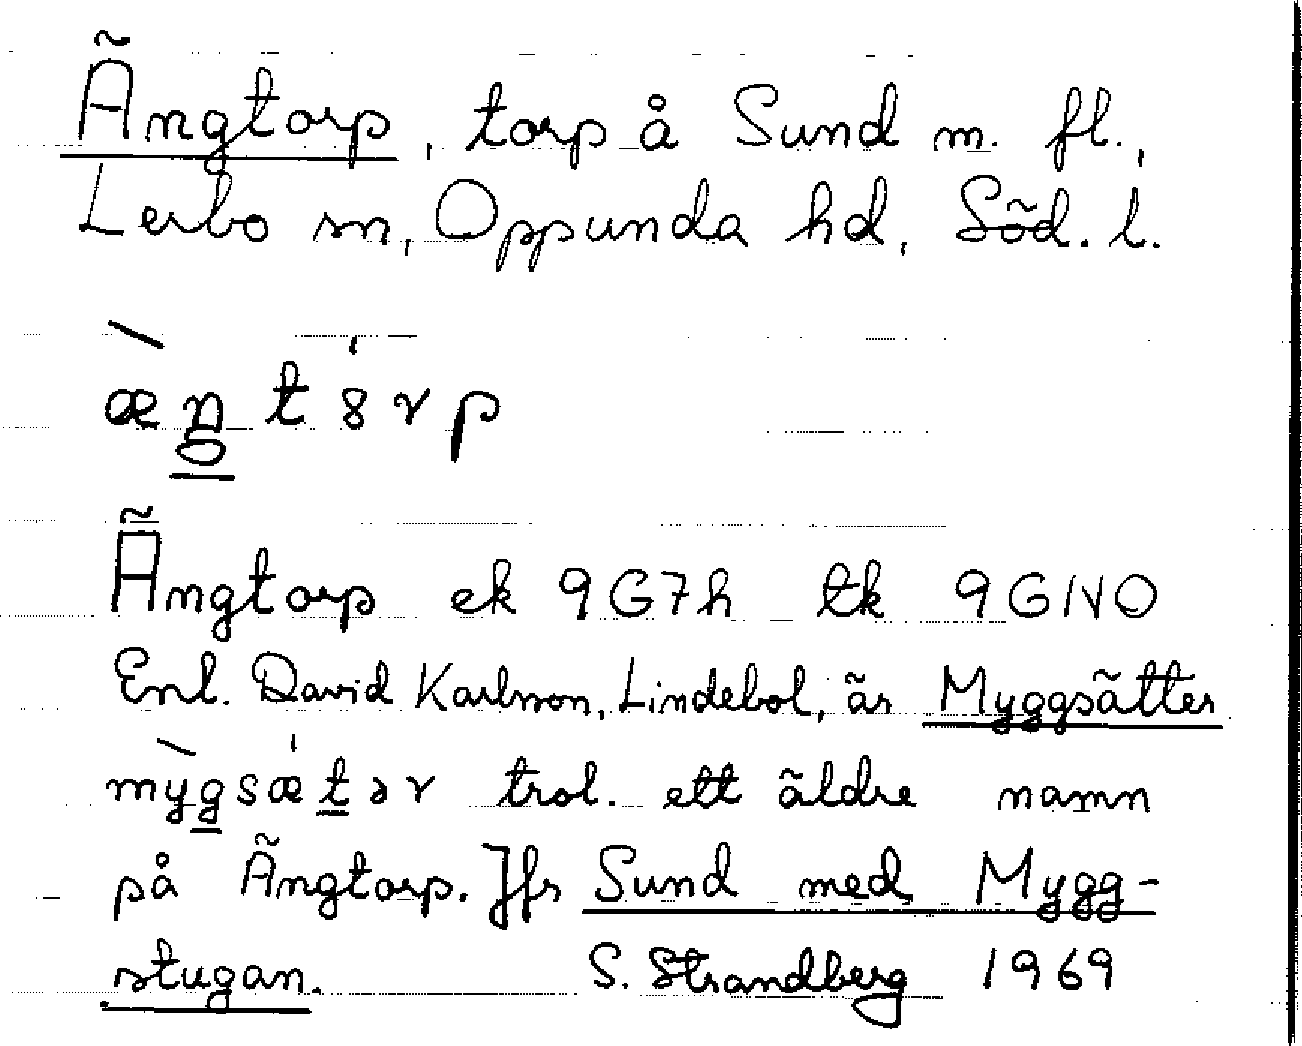 Ängtorp, torp å Sund m. fl.,
Lerbo sn, Oppunda hd, Söd. l.
æ̀ŋt8́rp
Ängtorp ek 9G7h tk 9GNO
Enl. David Karlsson, Lindebol, är Myggsätter
mỳgsǽtər trol. ett äldre namn
på Ängtorp. Jfr Sund med Mygg-
stugan. S. Strandberg 1969